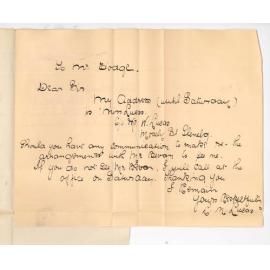 To Mr Dodge.
Dear Sir
My address (until Saturday)
is Mrs Lucas.
C/o Mr W. Lucas
Moseley St
Should you have any communication to make re the
arrangement with Mr Bevan to see me.
If you do not see Mr Bevan, I will call at the
office on Saturday. Thanking you
I Remain
Yours Respectfully
C M Lucas